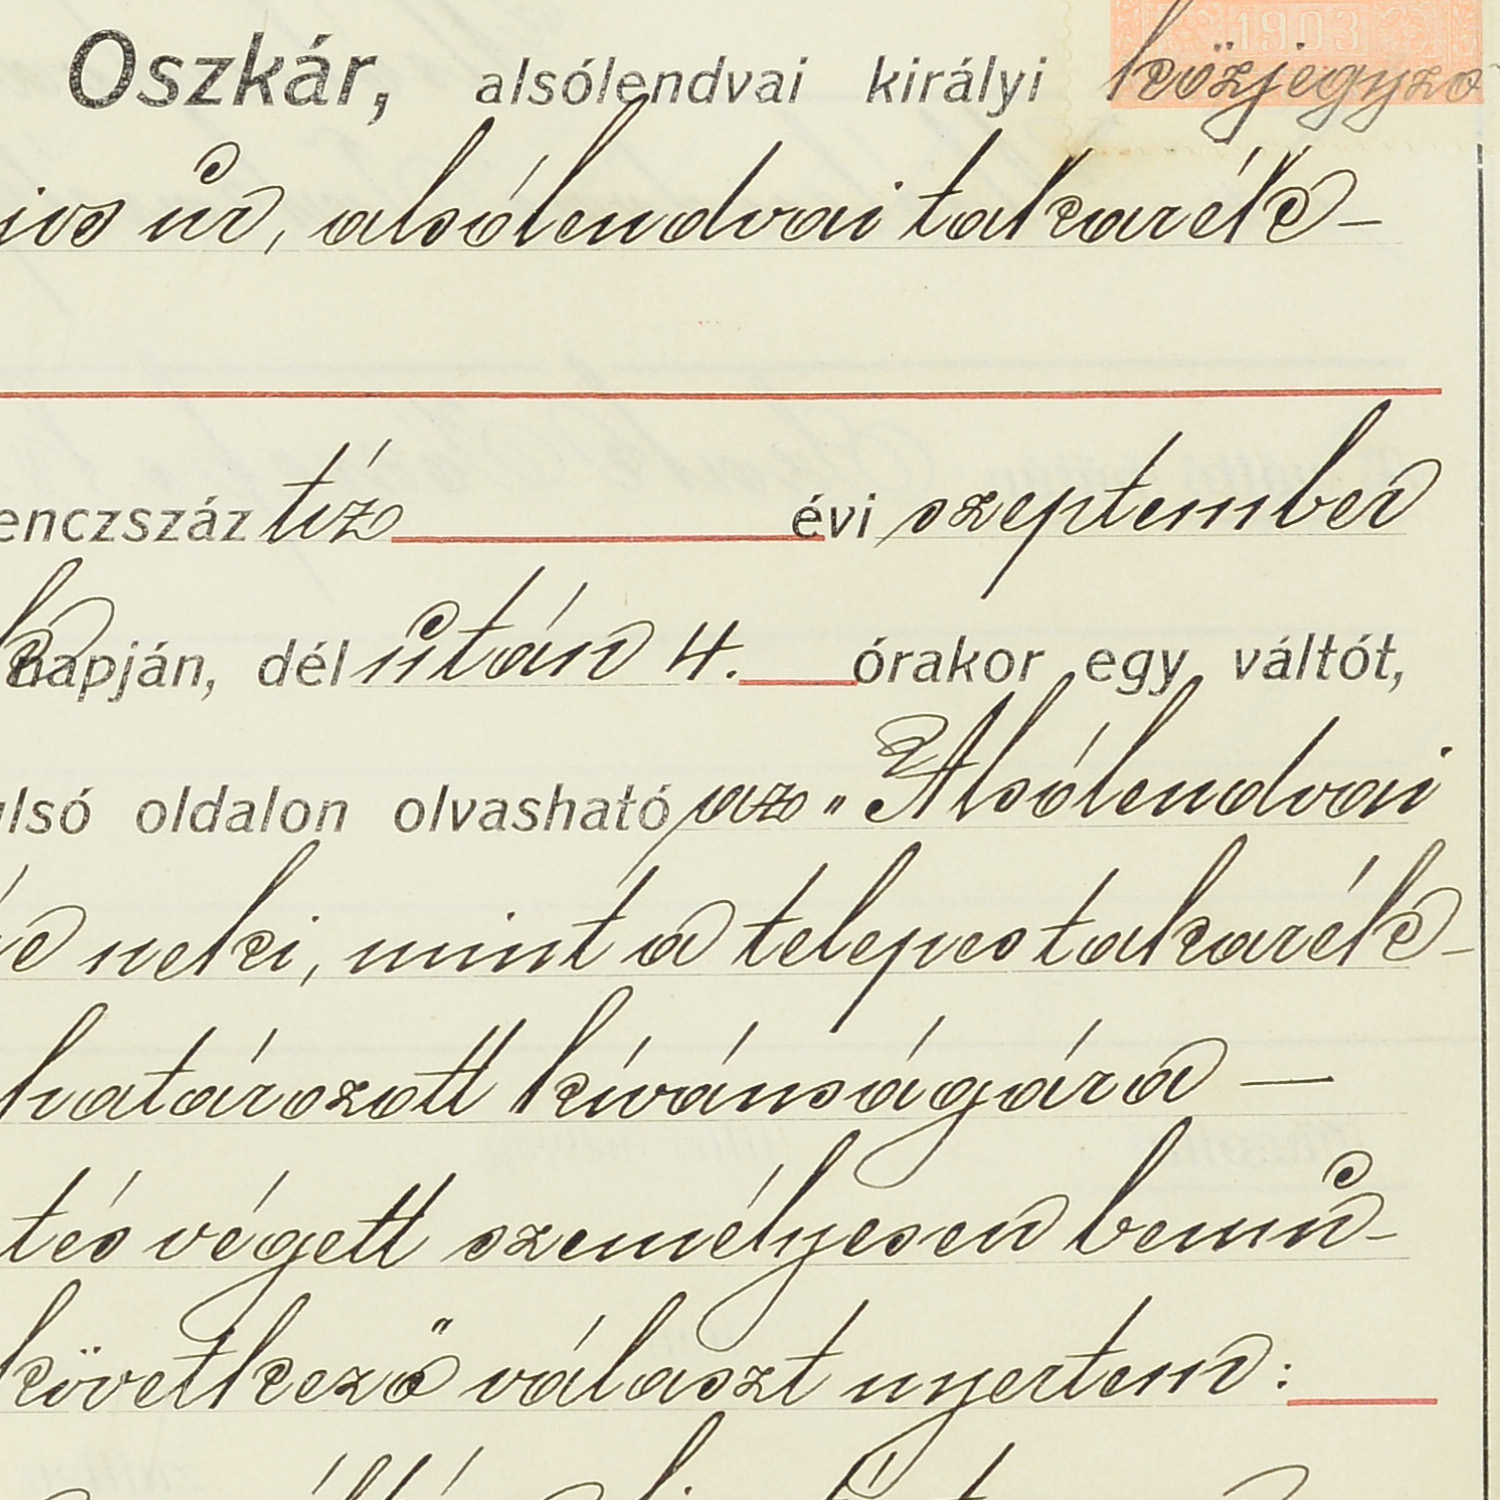 1903
Oszkár, alsólendvai királyi közjegyző
jos úr, alsólendvai takarék-
enczszáz tíz évi szeptember
napján, dél után 4. órakor egy váltót,
alsó oldalon olvasható az „Alsólendvai
neki, mint a telepes takarék-
határozott kívánságára —
tés végett személyesen bemu-
következő választ nyertem: